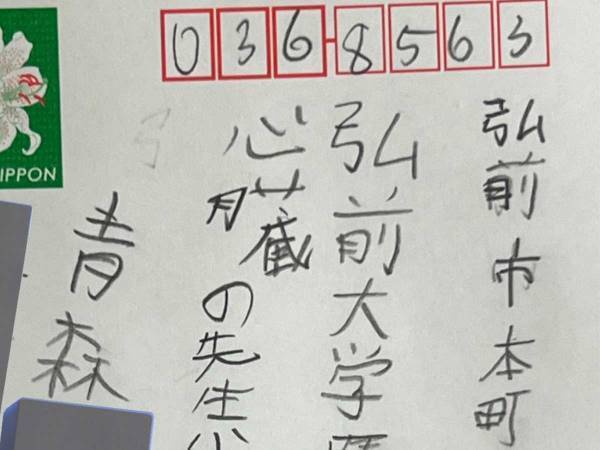 036-8563
弘前市本町
弘前大学医
心臓の先生
青森
IPPON